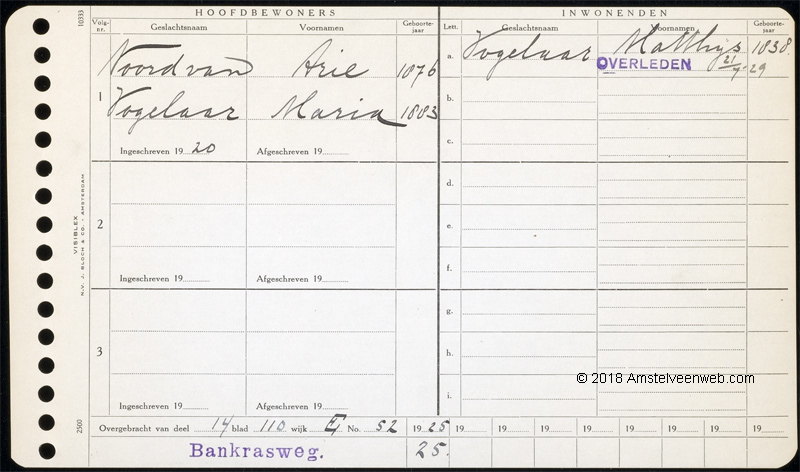 HOOFDBEWONERS
Volg-nr. Geslachtsnaam Voornamen Geboorte-jaar
1 Noord van Arie 1876
Vogelaar Maria 1883
Ingeschreven 19 20 Afgeschreven 19
2
Ingeschreven 19 Afgeschreven 19
3
Ingeschreven 19 Afgeschreven 19
INWONENDEN
Lett. Geslachtsnaam Voornamen Geboorte-jaar
a. Vogelaar Matthijs 1838.
OVERLEDEN 21/7-29
b.
c.
d.
e.
f.
g.
h.
i.
© 2018 Amstelveenweb.com
Overgebracht van deel 14 blad 110 wijk E No. 52 1925 19 19 19 19 19 19 19 19 19
Bankrasweg. 25.
10333
VISIBLEX
N.V. J. BLOCH & CO. - AMSTERDAM
2500